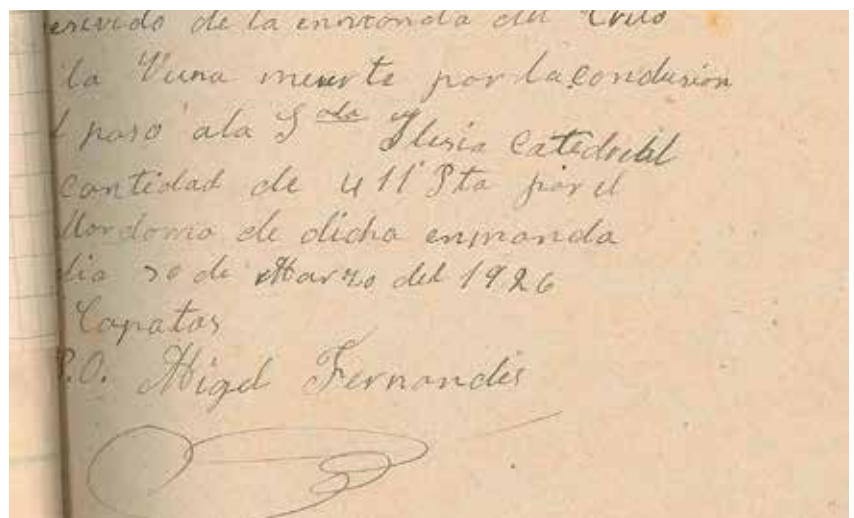 de la enmonda del Cristo
la Vuna muerte por la condusion
l paso ala S ada Ilusia Catedrdal
cantidad de 411 Pta por el
Mordomo de dicha enmanda
dia 30 de Marzo del 1926
Capatas
P.O. Migel Fernandes